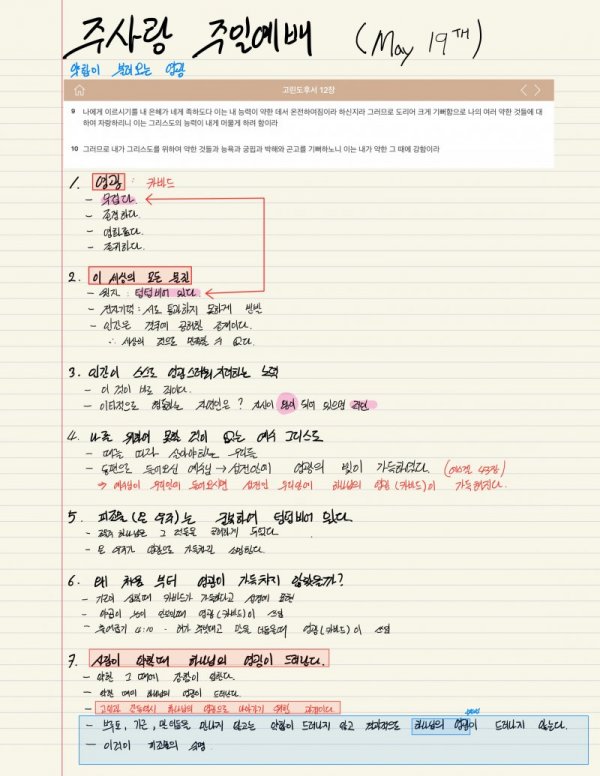 주사랑 주일예배 (May 19TH)
약함이 불러오는 영광
고린도후서 12장
9 나에게 이르시기를 내 은혜가 네게 족하도다 이는 내 능력이 약한 데서 온전하여짐이라 하신지라 그러므로 도리어 크게 기뻐함으로 나의 여러 약한 것들에 대
하여 자랑하리니 이는 그리스도의 능력이 내게 머물게 하려 함이라
10 그러므로 내가 그리스도를 위하여 약한 것들과 능욕과 궁핍과 박해와 곤고를 기뻐하노니 이는 내가 약한 그 때에 강함이라
1. 영광 : 카바드
- 무겁다.
- 존경하다.
- 영화롭다.
- 존귀하다.
2. 이 세상의 모든 물질
- 원자 : 텅텅비어 있다.
- 전자기력 : 서로 통과하지 못하게
- 인간은 존재이다.
∴ 세상의 것으로 만족할 수 없다.
3. 인간이 스스로 영광스러워지려하는 노력
- 이 것이 바로 죄이다.
- 이타적으로 행동하는 자연인은? 자신이 되어 있으면
4. 나를 위하여 못할 것이 없는 예수 그리스도
- 우리들
- 동편으로 들어오신 예수님 → 성전안에 영광의 빛이 가득하였다. (에스겔 43장)
→ 예수님이 우리안에 들어오시면 성전인 우리안에 하나님의 영광(카바드)이 가득해진다.
5. 피조물(온 우주)는 공허하여 텅텅비어 있다.
- 하나님은 그 공허하게 두셨다.
- 온 우주가 영광으로 가득하길
6. 왜 처음 부터 영광이 가득하지 않았을까?
- 카바드가 가득하다고 성경에 표현
- 영광(카바드)이
- 출애굽기 4:10 - 영광(카바드)이
7. 사람이 약할때 하나님의 영광이 드러난다.
- 약한 그 때에 강함이 임한다.
- 약할 때에 하나님의 영광이 드러난다.
- 하나님의 영광으로 나아가기 위한 과정이다.
- 만나지 않고는 약함이 드러나지 않고 하나님의 영광이 드러나지 않는다.
- 이것이 피조물의 숙명